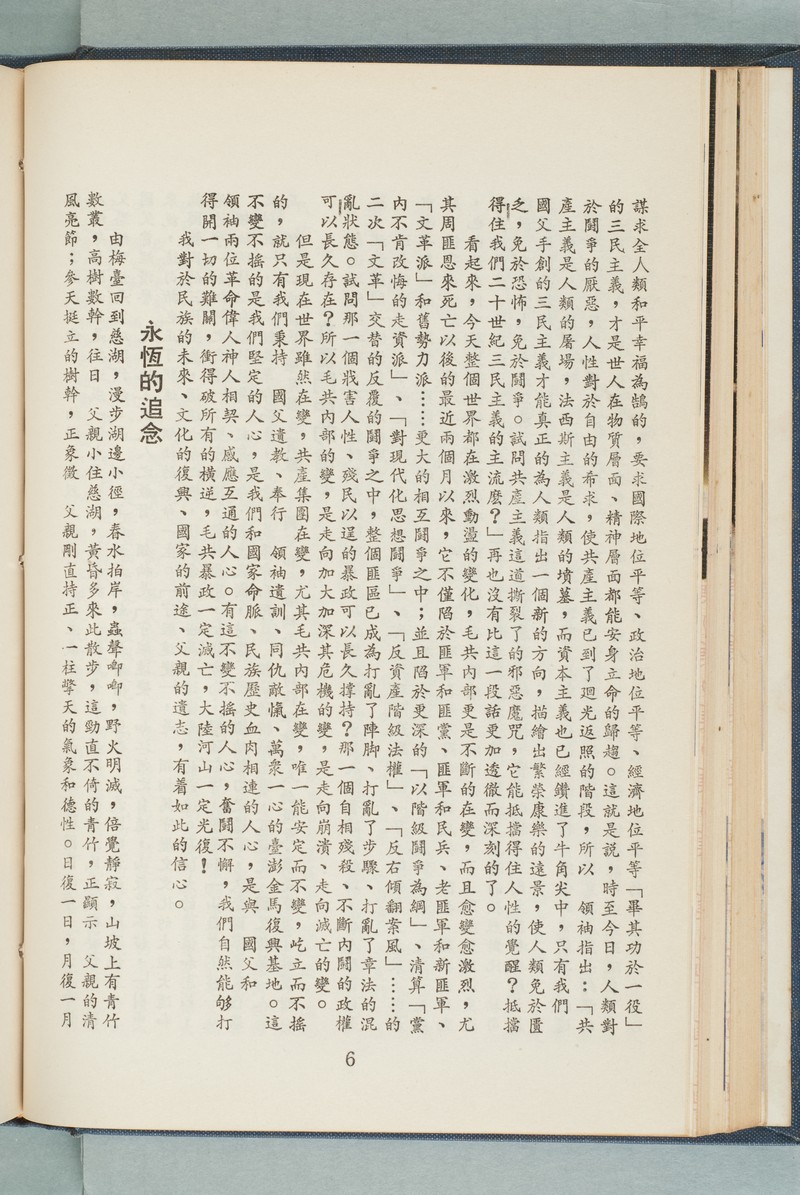 謀求全人類和平幸福為鵠的，要求國際地位平等、政治地位平等、經濟地位平等「畢其功於一役」
的三民主義，才是世人在物質層面、精神層面都能安身立命的歸趨。這就是說，時至今日，人類對
於鬪爭的厭惡，人性對於自由的希求，使共產主義已到了廻光返照的階段，所以　領袖指出：「共
產主義是人類的屠場，法西斯主義是人類的墳墓，而資本主義也已經鑽進了牛角尖中，只有我們
國父手創的三民主義才能真正的為人類指出一個新的方向，描繪出繁榮康樂的遠景，使人類免於匱
乏，免於恐怖，免於鬪爭。試問共產主義這道撕裂了的邪惡魔咒，它能抵擋得住人性的覺醒？抵擋
得住我們二十世紀三民主義的主流麼？」再也沒有比這一段話更加透徹而深刻的了。
看起來，今天整個世界都在激烈動盪的變化，毛共內部更是不斷的在變，而且愈變愈激烈，尤
其周匪恩來死亡以後的最近兩個月以來，它不僅陷於匪軍和匪黨、匪軍和民兵、老匪軍和新匪軍、
「文革派」和舊勢力派……更大的相互鬪爭之中；並且陷於更深的「以階級鬪爭為綱」、清算「黨
內不肯改悔的走資派」、「對現代化思想鬪爭」、「反資產階級法權」、「反右傾翻案風」……的
二次「文革」交替的反覆的鬪爭之中，整個匪區已成為打亂了陣脚、打亂了步驟、打亂了章法的混
亂狀態。試問那一個戕害人性、殘民以逞的暴政可以長久撐持？那一個自相殘殺、不斷內鬪的政權
可以長久存在？所以毛共內部的變，是走向加大加深其危機的變，是走向崩潰、走向滅亡的變。
但是現在世界雖然在變，共產集團在變，尤其毛共內部在變，唯一能安定而不變，屹立而不搖
的，就只有我們秉持　國父遺教、奉行　領袖遺訓、同仇敵愾、萬衆一心的臺澎金馬復興基地。這
不變不搖的是我們堅定的人心，是我們和國家命脈、民族歷史血肉相連的人心，是與　國父和
領袖兩位革命偉人神人相契、感應互通的人心。有這不變不搖的人心，奮鬪不懈，我們自然能够打
得開一切的難關，衝得破所有的橫逆，毛共暴政一定滅亡，大陸河山一定光復！
我對於民族的未來、文化的復興、國家的前途、父親的遺志，有着如此的信心。
永恆的追念
由梅臺回到慈湖，漫步湖邊小徑，春水拍岸，蟲聲唧唧，野火明滅，倍覺靜寂，山坡上有青竹
數叢，高樹數幹，往日　父親小住慈湖，黃昏多來此散步，這勁直不倚的青竹，正顯示　父親的清
風亮節；參天挺立的樹幹，正象徵　父親剛直持正、一柱擎天的氣象和德性。日復一日，月復一月
6